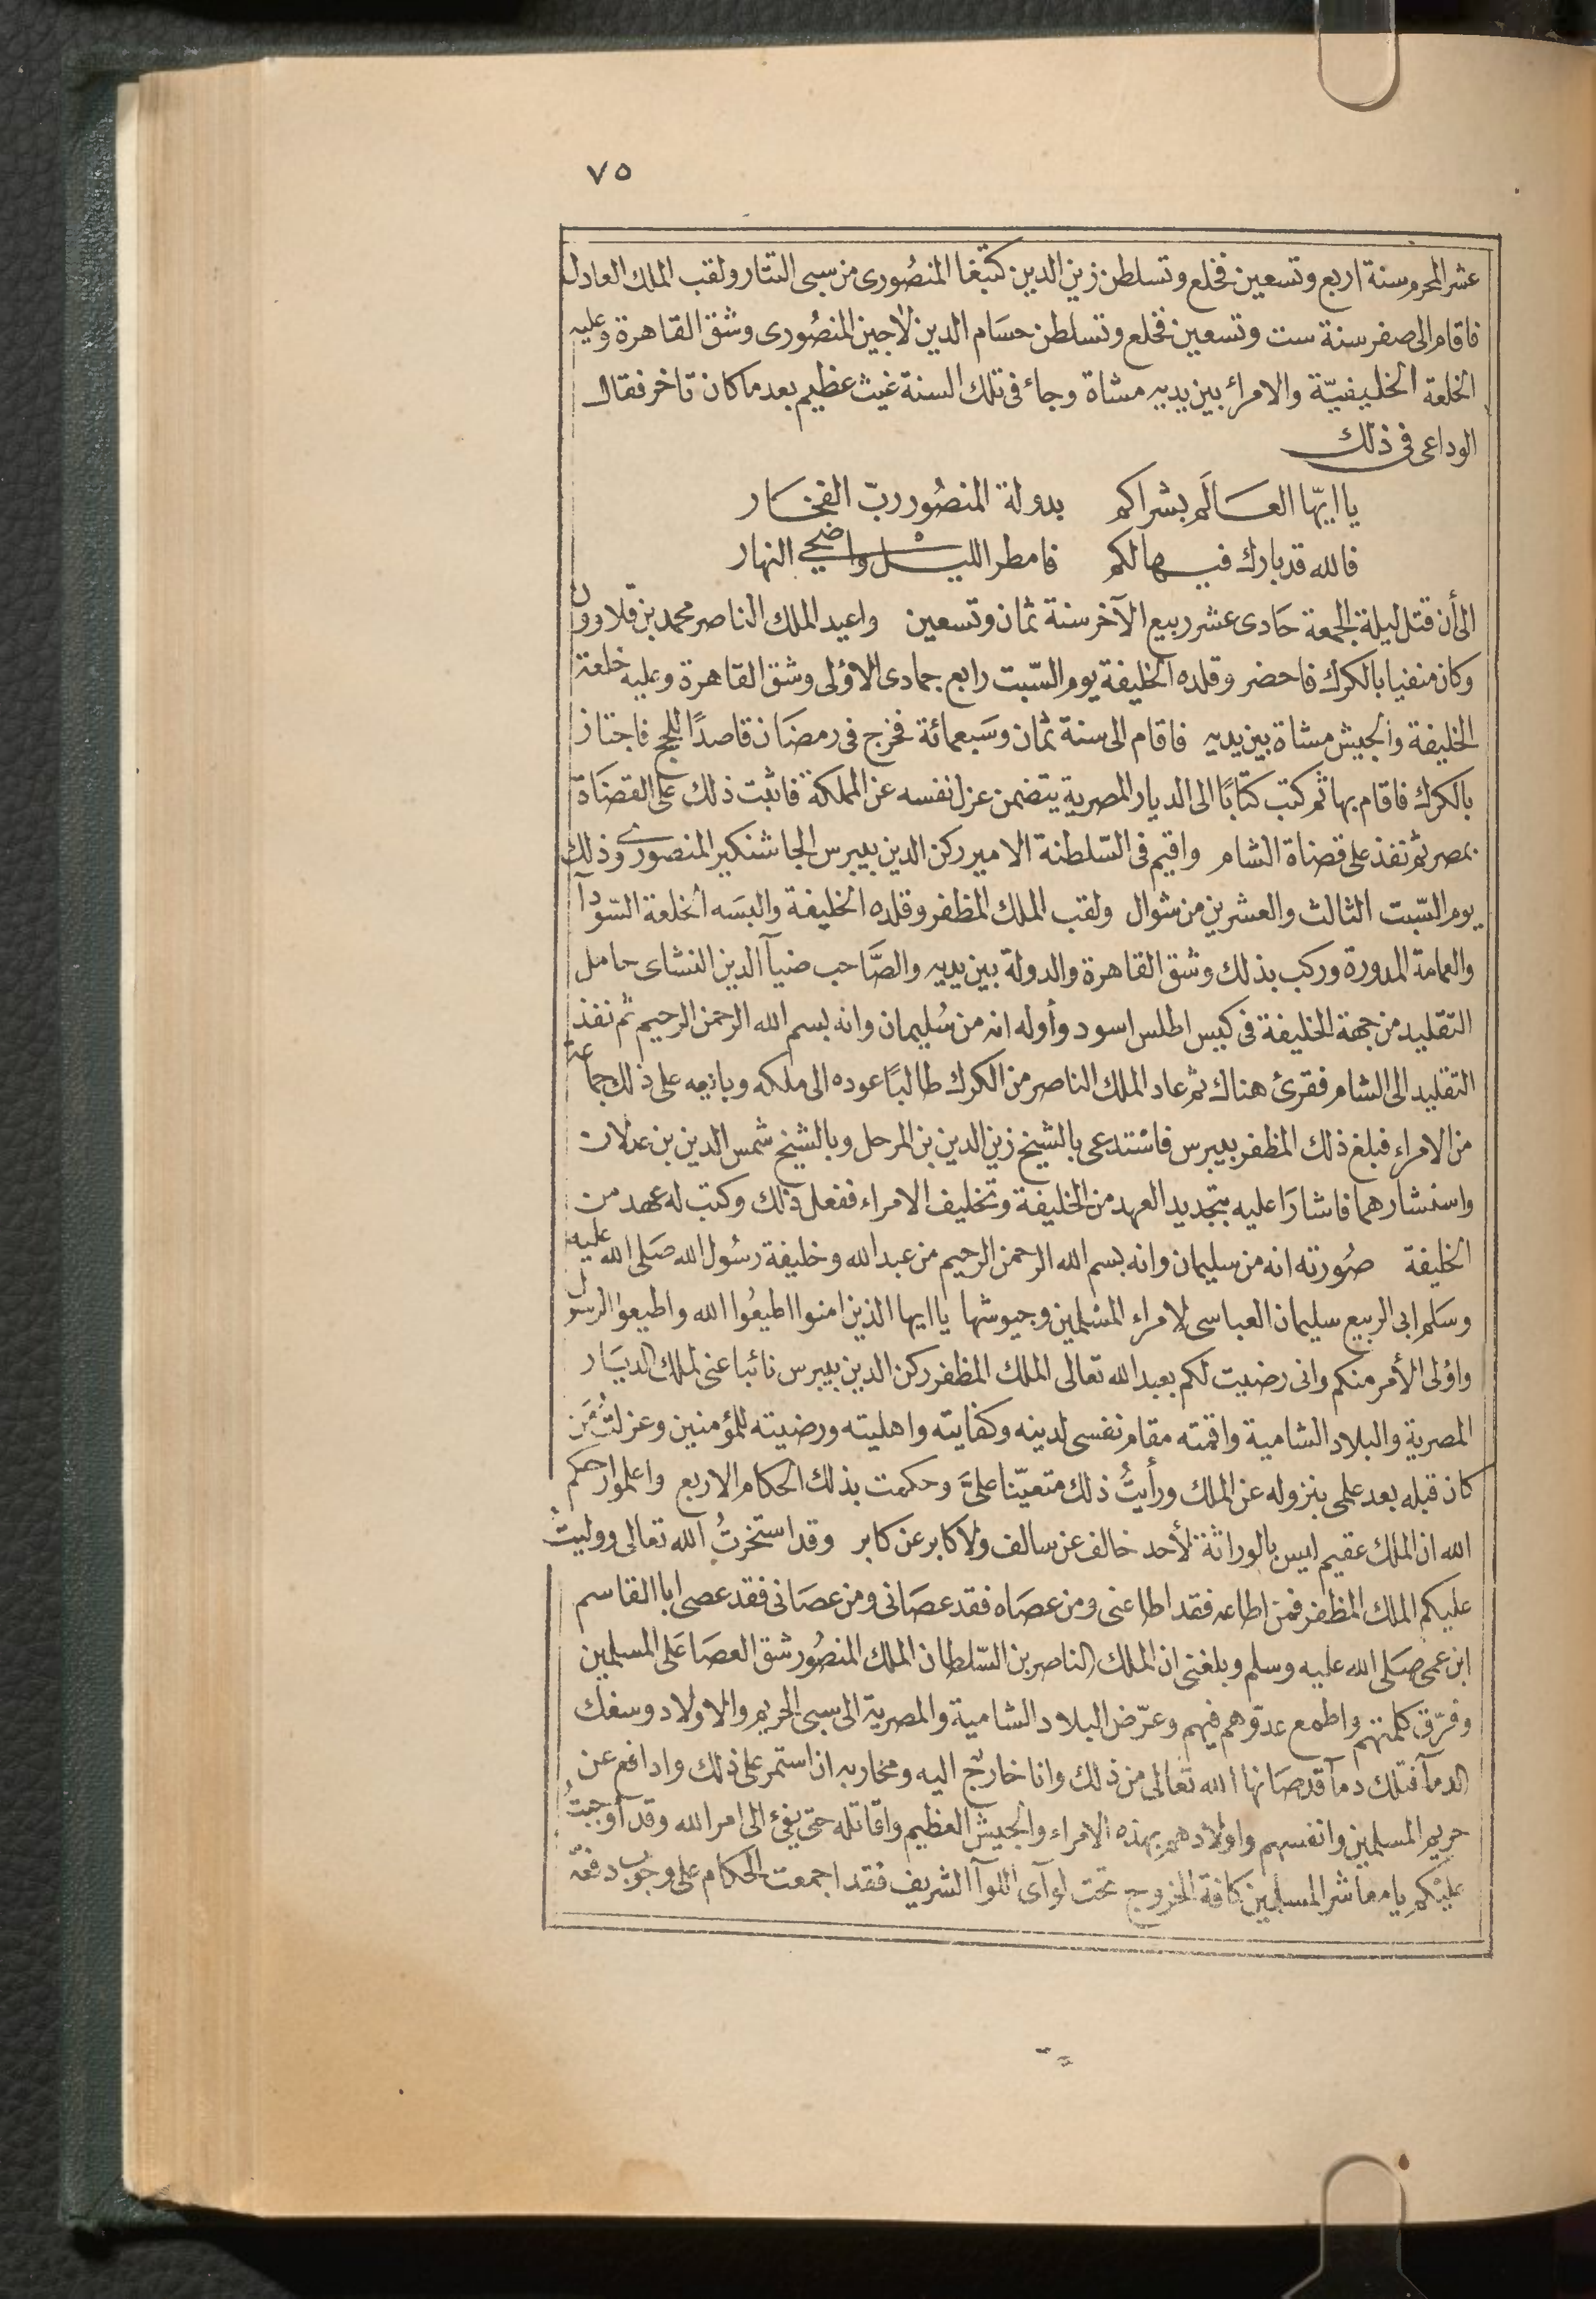 ٧٥
عشر المحرم سنة اربع وتسعين فخلع وتسلطن زين الدين كتبغا المنصُورى من سبى التتار ولقب الملك العادل
فاقام الى صفر سنة ست وتسعين فخلع وتسلطن حسَام الدين لاجين المنصُورى وشق القاهرة وعليه
الخلعة الخليفيّة والامرأ بين يديه مشاة وجاء فى تلك السنة غيث عظيم بعد ما كان تاخر فقال
الوداعى فى ذلك
يا ايّها العَالَم بشراكم بدولة المنصُور ربّ الفخار
فالله قد بارك فيها لكم فامطر الليل واضحى النهار
الى أن قتل ليلة الجمعة حَادى عشر ربيع الآخر سنة ثمان وتسعين واعيد الملك الناصر محمد بن قلاوون
وكان منفيا بالكرك فاحضر وقلده الخليفة يوم السّبت رابع جمادى الاؤلى وشق القاهرة وعليه خلعة
الخليفة والجيش مشاة بين يديه فاقام الى سنة ثمان وسَبعمائة فخرج فى رمضَان قاصدًا للحج فاجتاز
بالكرك فاقام بها ثم كتب كتابًا الى الديار المصرية يتضمن عزل نفسه عن المملكة فاثبت ذلك على القضَاة
بمصر ثم نفذ على قضاة الشام واقيم فى السّلطنة الامير ركن الدين بيبرس الجاشنكير المنصورى وذلك
يوم السّبت الثالث والعشرين من شوال ولقب الملك المظفر وقلده الخليفة والبسَه الخلعة السّودآ
والعمامة المدورة وركب بذلك وشق القاهرة والدولة بين يديه والصَّاحب ضيآ الدين النشاى حامل
التقليد من جهة الخليفة فى كيس اطلس اسود وأوله انه من سُليمان وانه بسم الله الرحمن الرحيم ثم نفذ
التقليد الى الشام فقرئ هناك ثم عاد الملك الناصر من الكرك طالبًا عوده الى ملكه وبايعه على ذلك جماعة
من الامراء فبلغ ذلك المظفر بيبرس فاستدعى بالشيخ زين الدين بن المرحل وبالشيخ شمس الدين بن عدلان
واستشارهما فاشارَا عليه بتجديد العهد من الخليفة وتحليف الامراء ففعل ذلك وكتب له عهد من
الخليفة صُورته انه من سليمان وانه بسم الله الرحمن الرحيم من عبد الله وخليفة رسُول الله صَلى الله عليه
وسَلم ابى الربيع سليمان العباسى لامراء المسلمين وجيوشها يا ايها الذين امنوا اطيعُوا الله واطيعوا الرسول
واؤلى الأمر منكم وانى رضيت لكم بعبد الله تعالى الملك المظفر ركن الدين بيبرس نائبا عنى لملك الديَار
المصرية والبلاد الشامية واقمته مقام نفسى لدينه وكفايته واهليته ورضيته للمؤمنين وعزلتُ مَن
كان قبله بعد علمى بنزوله عن الملك ورأيتُ ذلك متعيّنا علىَّ وحكمت بذلك الحكام الاربع واعلموا رحمكم
الله ان الملك عقيم ليس بالوراثة لأحد خالف عن سالف ولا كابر عن كابر وقد استخرتُ الله تعالى ووليتُ
عليكم الملك المظفر فمن اطاعه فقد اطاعنى ومن عصَاه فقد عصَانى ومن عصَانى فقد عصى ابا القاسم
ابن عمى صَلى الله عليه وسلم وبلغنى ان الملك الناصر بن السّلطان الملك المنصُور شق العصَا عَلى المسلمين
وفرّق كلمتهم واطمع عدوّهم فيهم وعرّض البلاد الشامية والمصرية الى سبى الحريم والاولاد وسفك
الدمآ فتلك دمآ قد صَانها الله تعالى من ذلك وانا خارج اليه ومحاربه ان استمر على ذلك وادافع عن
حريم المسلمين وانفسهم واولادهم بهذه الامراء والجيش العظيم واقاتله حتى يفئ الى امر الله وقد اوجبتُ
عليْكم يا معاشر المسلمين كافة الخروج تحت لوآى اللوآ الشريف فقد اجمعت الحكام على وجُوب دفعه